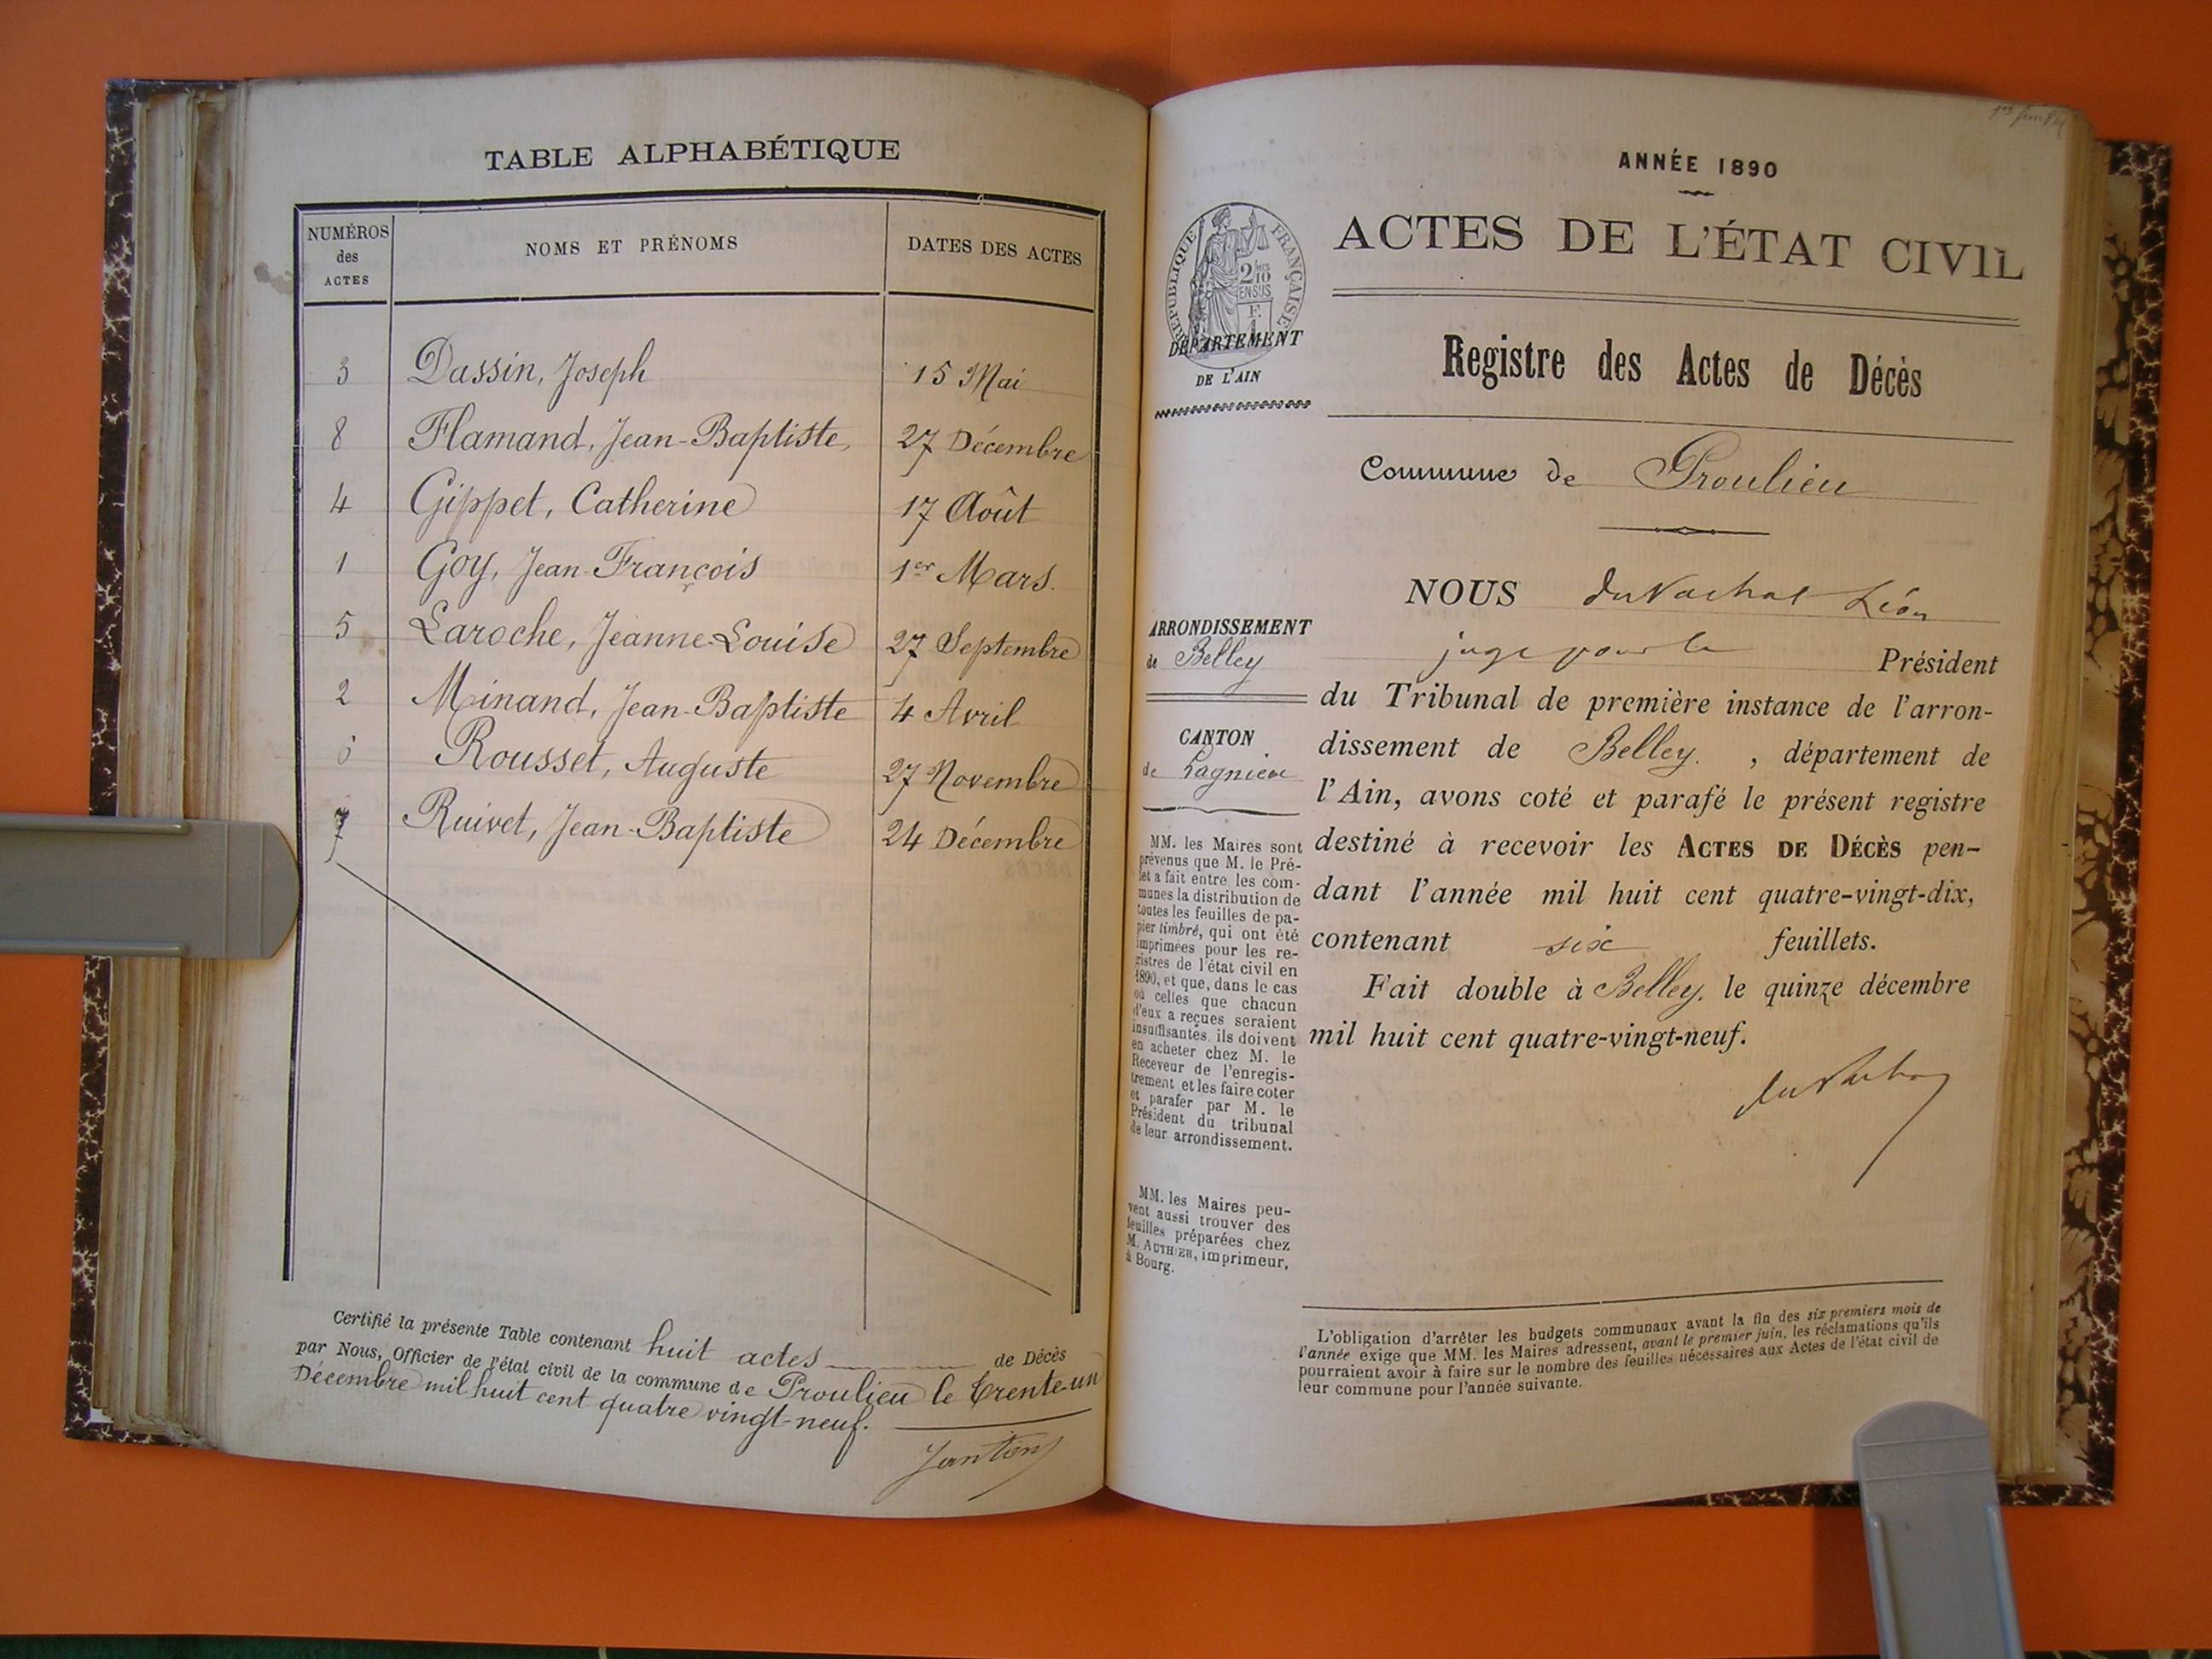 TABLE ALPHABÉTIQUE
NUMÉROS des ACTES NOMS ET PRÉNOMS DATES DES ACTES
3 Dassin, Joseph 15 Mai
8 Flamand, Jean-Baptiste, 27 Décembre
4 Gippet, Catherine 17 Août
1 Goy, Jean-François 1er Mars.
5 Laroche, Jeanne-Louise 27 Septembre
2 Minand, Jean-Baptiste 4 Avril
6 Rousset, Auguste 27 Novembre
7 Ruivet, Jean-Baptiste 24 Décembre
Certifié la présente Table contenant huit actes de Décès
par Nous, Officier de l'état civil de la commune de Proulieu le trente-un
Décembre mil huit cent quatre vingt-neuf.
Janton
ANNÉE 1890
ACTES DE L'ÉTAT CIVIL
RÉPUBLIQUE FRANÇAISE
2/10 EN SUS
DÉPARTEMENT
DE L'AIN
Registre des Actes de Décès
Commune de Proulieu
ARRONDISSEMENT
de Belley
CANTON
de Lagnieu
NOUS du Vachat Léon
juge pour le Président
du Tribunal de première instance de l'arron-
dissement de Belley. , département de
l'Ain, avons coté et parafé le présent registre
destiné à recevoir les ACTES DE DÉCÈS pen-
dant l'année mil huit cent quatre-vingt-dix,
contenant six feuillets.
Fait double à Belley, le quinze décembre
mil huit cent quatre-vingt-neuf.
du Vachat
MM. les Maires sont
prévenus que M. le Pré-
fet a fait entre les com-
munes la distribution de
toutes les feuilles de pa-
pier timbré, qui ont été
imprimées pour les re-
gistres de l'état civil en
1890, et que, dans le cas
où celles que chacun
d'eux a reçues seraient
insuffisantes, ils doivent
en acheter chez M. le
Receveur de l'enregis-
trement et les faire coter
et parafer par M. le
Président du tribunal
de leur arrondissement.
MM. les Maires peu-
vent aussi trouver des
feuilles préparées chez
M. AUTHIER, imprimeur,
à Bourg.
L'obligation d'arrêter les budgets communaux avant la fin des six premiers mois de
l'année exige que MM. les Maires adressent, avant le premier juin, les réclamations qu'ils
pourraient avoir à faire sur le nombre des feuilles nécessaires aux Actes de l'état civil de
leur commune pour l'année suivante.